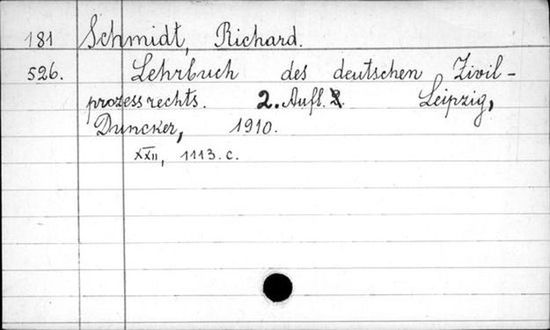 181 Schmidt, Richard.
526. Lehrbuch des deutschen Zivil-
prozessrechts. 2. Aufl. Leipzig,
Duncker, 1910.
XXII, 1113. c.